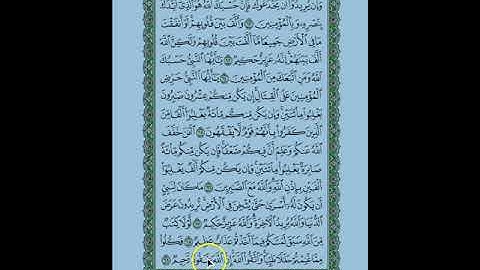 وَإِن يُرِيدُوٓا۟ أَن يَخْدَعُوكَ فَإِنَّ حَسْبَكَ ٱللَّهُ هُوَ ٱلَّذِىٓ أَيَّدَكَ
بِنَصْرِهِۦ وَبِٱلْمُؤْمِنِينَ وَأَلَّفَ بَيْنَ قُلُوبِهِمْ لَوْ أَنفَقْتَ
مَا فِى ٱلْأَرْضِ جَمِيعًا مَّآ أَلَّفْتَ بَيْنَ قُلُوبِهِمْ وَلَٰكِنَّ ٱللَّهَ
أَلَّفَ بَيْنَهُمْ إِنَّهُۥ عَزِيزٌ حَكِيمٌ يَٰٓأَيُّهَا ٱلنَّبِىُّ حَسْبُكَ
ٱللَّهُ وَمَنِ ٱتَّبَعَكَ مِنَ ٱلْمُؤْمِنِينَ يَٰٓأَيُّهَا ٱلنَّبِىُّ حَرِّضِ
ٱلْمُؤْمِنِينَ عَلَى ٱلْقِتَالِ إِن يَكُن مِّنكُمْ عِشْرُونَ صَٰبِرُونَ
يَغْلِبُوا۟ مِا۟ئَتَيْنِ وَإِن يَكُن مِّنكُم مِّا۟ئَةٌ يَغْلِبُوٓا۟ أَلْفًا مِّنَ
ٱلَّذِينَ كَفَرُوا۟ بِأَنَّهُمْ قَوْمٌ لَّا يَفْقَهُونَ ٱلْـَٰٔنَ خَفَّفَ
ٱللَّهُ عَنكُمْ وَعَلِمَ أَنَّ فِيكُمْ ضَعْفًا فَإِن يَكُن مِّنكُم مِّا۟ئَةٌ
صَابِرَةٌ يَغْلِبُوا۟ مِا۟ئَتَيْنِ وَإِن يَكُن مِّنكُمْ أَلْفٌ يَغْلِبُوٓا۟
أَلْفَيْنِ بِإِذْنِ ٱللَّهِ وَٱللَّهُ مَعَ ٱلصَّٰبِرِينَ مَا كَانَ لِنَبِىٍّ
أَن يَكُونَ لَهُۥٓ أَسْرَىٰ حَتَّىٰ يُثْخِنَ فِى ٱلْأَرْضِ تُرِيدُونَ عَرَضَ
ٱلدُّنْيَا وَٱللَّهُ يُرِيدُ ٱلْـَٔاخِرَةَ وَٱللَّهُ عَزِيزٌ حَكِيمٌ لَّوْلَا كِتَٰبٌ
مِّنَ ٱللَّهِ سَبَقَ لَمَسَّكُمْ فِيمَآ أَخَذْتُمْ عَذَابٌ عَظِيمٌ فَكُلُوا۟
مِمَّا غَنِمْتُمْ حَلَٰلًا طَيِّبًا وَٱتَّقُوا۟ ٱللَّهَ إِنَّ ٱللَّهَ غَفُورٌ رَّحِيمٌ